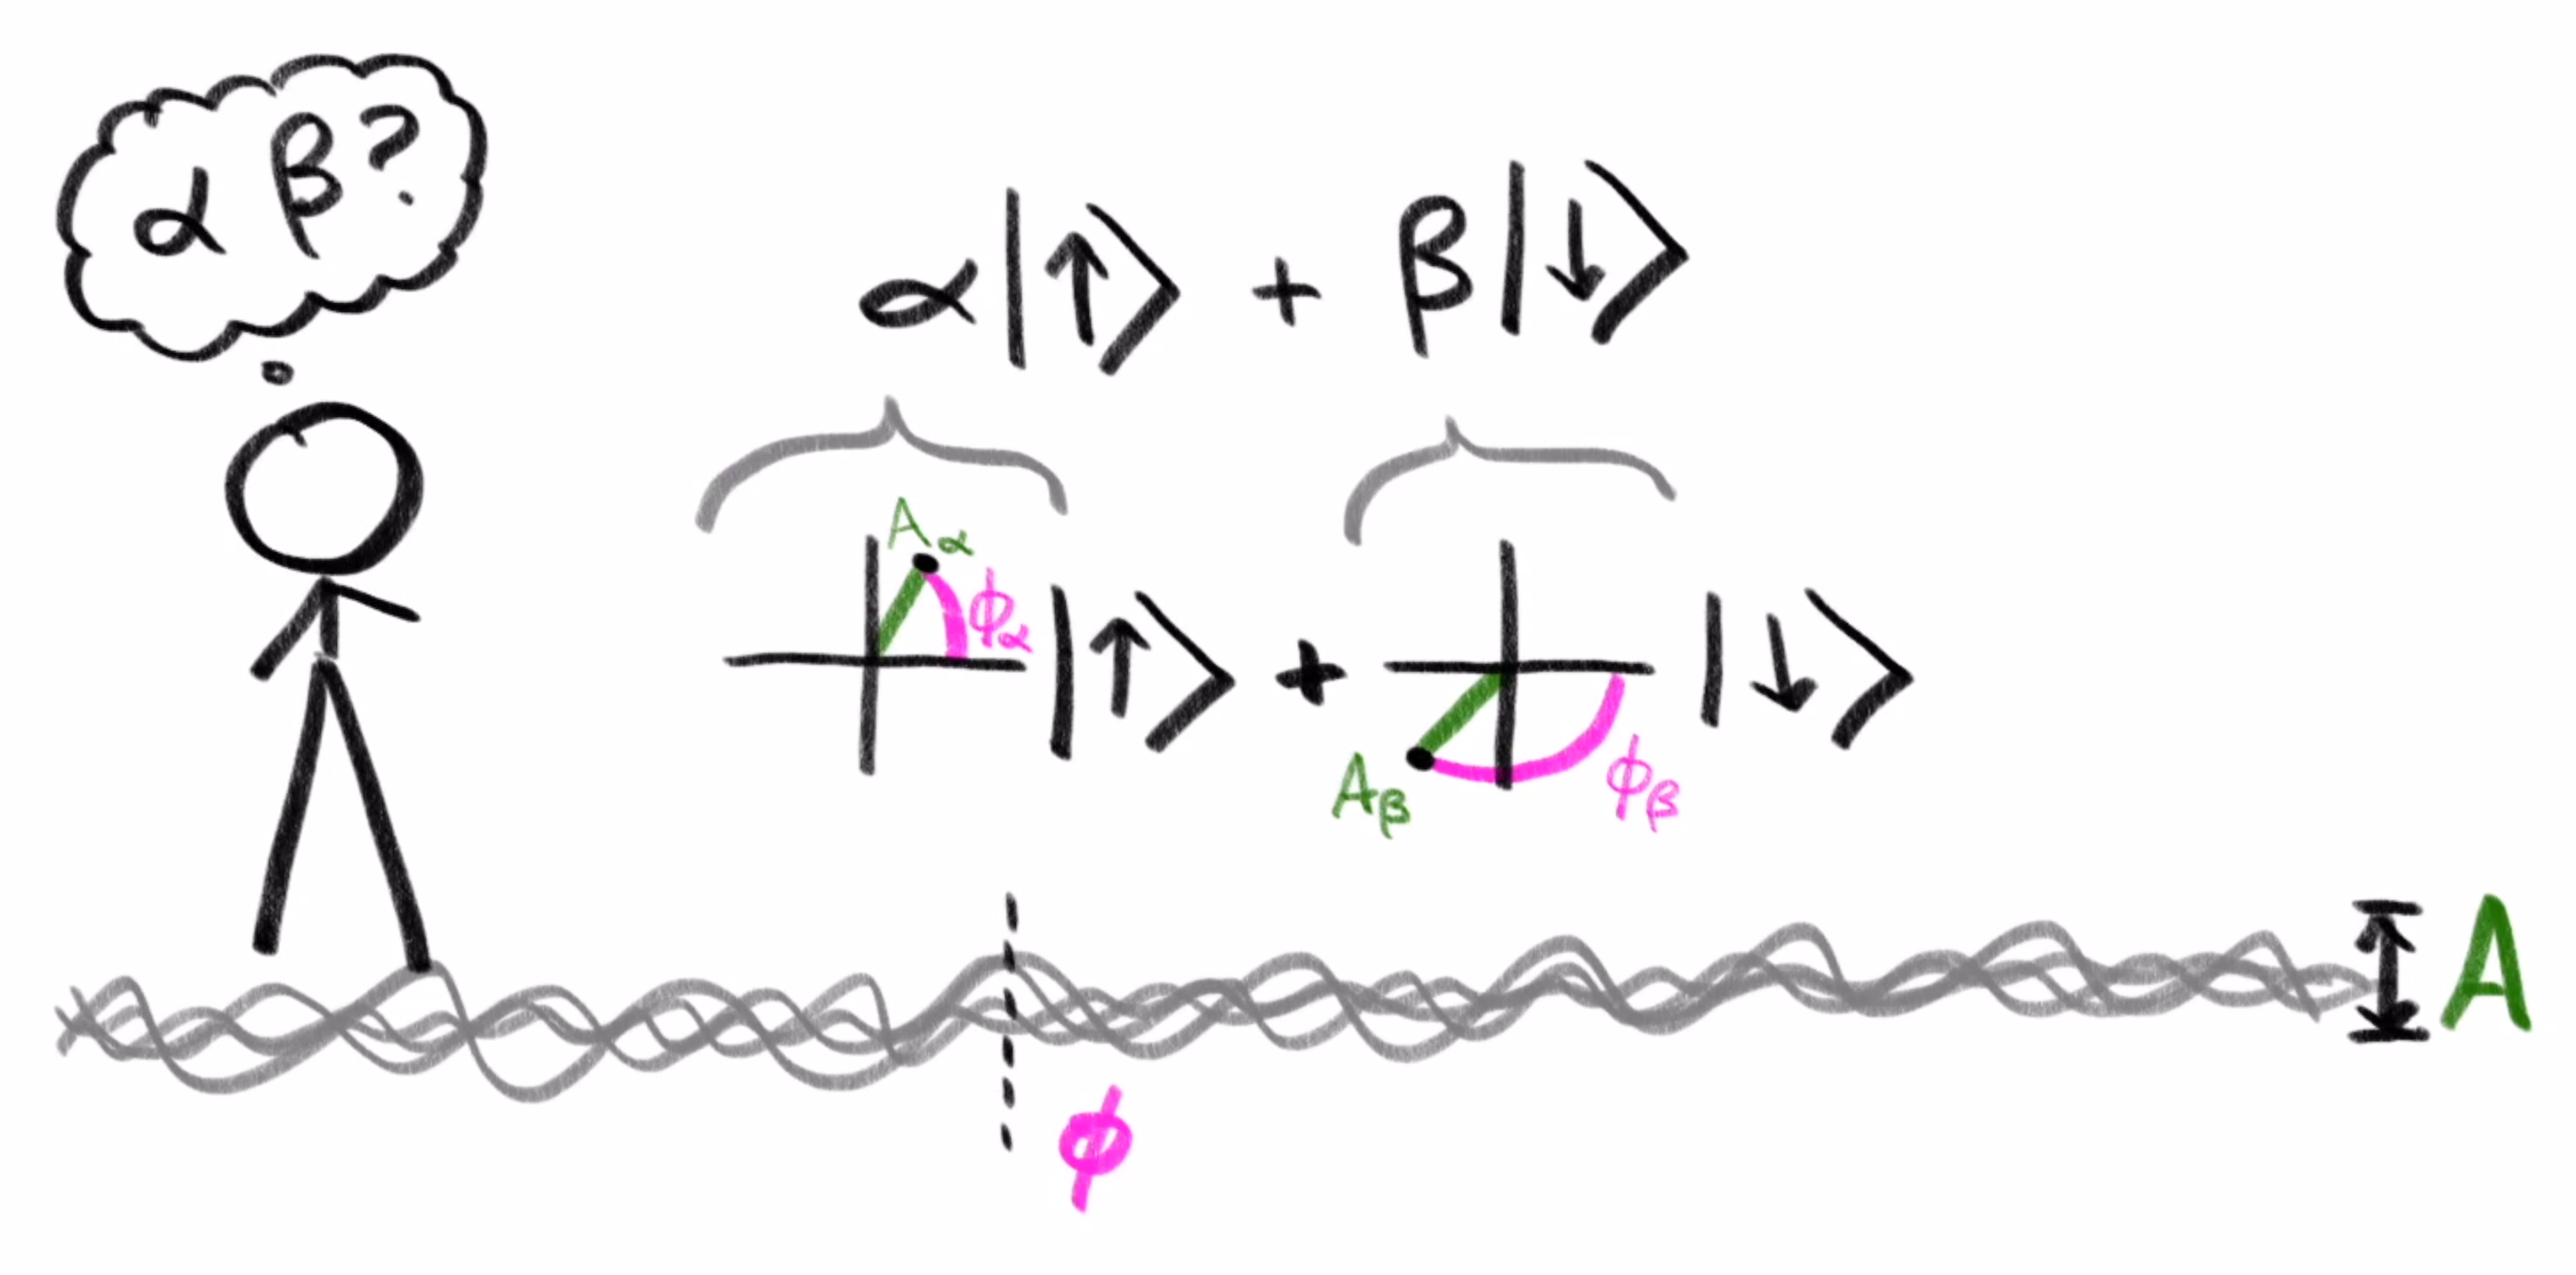 α β?
α|↑⟩ + β|↓⟩
Aα ϕα |↑⟩ + Aβ ϕβ |↓⟩
A
ϕ